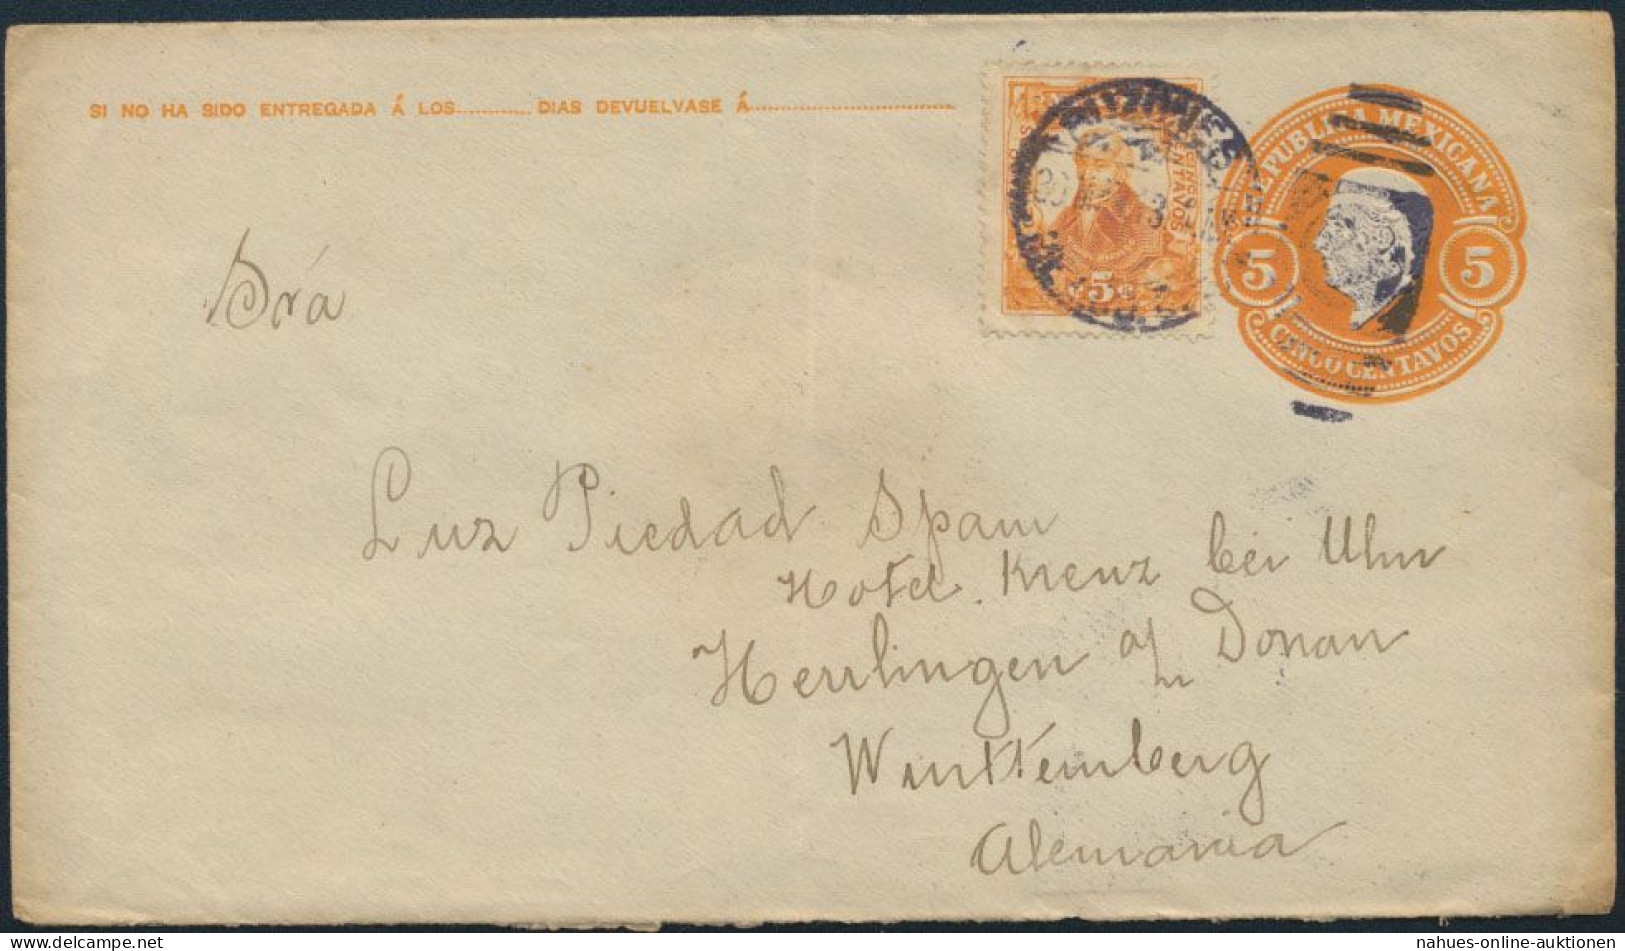 SI NO HA SIDO ENTREGADA Á LOS............DIAS DEVUELVASE Á..............................
REPUBLICA MEXICANA
5 5
CINCO CENTAVOS
CINCO CENTAVOS
5
Srá
Luz Piedad Spam
Hotel Kreuz bei Ulm
Herrlingen a/ Donau
Wurttemberg
Alemania
www.nahues-online-auktionen